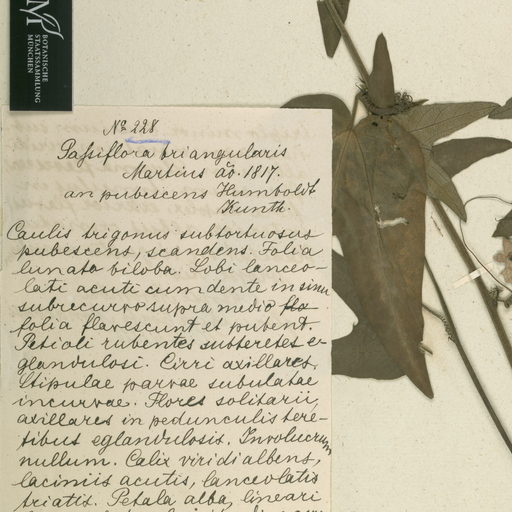 M
BOTANISCHE
STAATSSAMMLUNG
MÜNCHEN
No 228
Passiflora triangularis
Martius ao. 1817.
an pubescens Humboldt
Kunth.
Caulis trigonus subtortuosus
pubescens, scandens. Folia
lunato biloba. Lobi lanceo-
lati acuti cum dente in sinu
subrecurvo supra medio flo
folia flavescunt et pubent.
Petioli rubentes subteretes e-
glandulosi. Cirri axillares.
Stipulae parvae subulatae
incurvae. Flores solitarii,
axillares in pedunculis tere-
tibus eglandulosis. Involucrum
nullum. Calix viridialbens,
laciniis acutis, lanceolatis
triatis. Petala alba, lineari